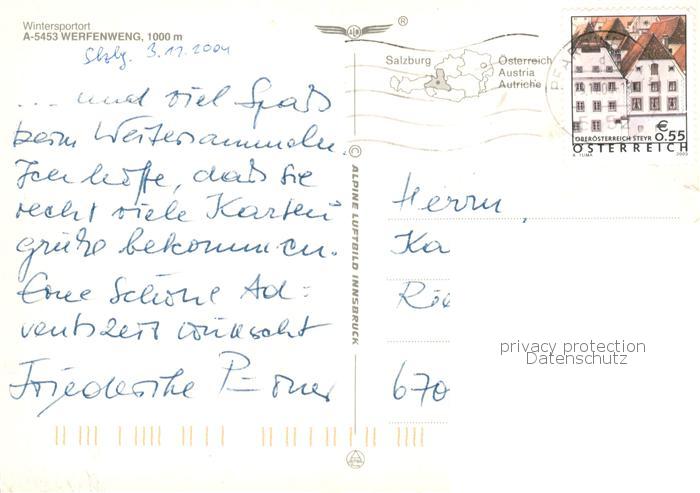 Wintersportort
A-5453 WERFENWENG, 1000 m
Sbg. 3.11.2004
... und viel Spaß
beim Weitersammeln.
Ich hoffe, daß Sie
recht viele Karten
grüße bekommen.
Eine Schöne Ad-
ventszeit wünscht
Friederike
®
Salzburg
Österreich
Austria
Autriche
€
0.55
OBERÖSTERREICH STEYR
A. TUMA
2003
ÖSTERREICH
© ALPINE LUFTBILD INNSBRUCK
Herrn
Ka
670
privacy protection
Datenschutz